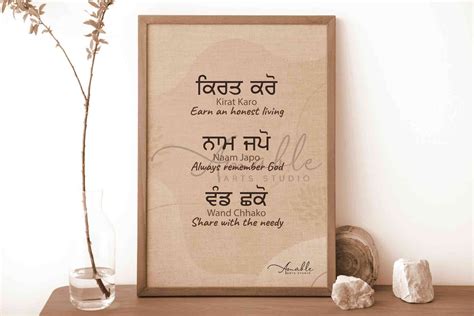 ਕਿਰਤ ਕਰੋ
Kirat Karo
Earn an honest living
ਨਾਮ ਜਪੋ
Naam Japo
Always remember God
ਵੰਡ ਛਕੋ
Wand Chhako
Share with the needy
Amable
ARTS STUDIO
Amable
ARTS STUDIO